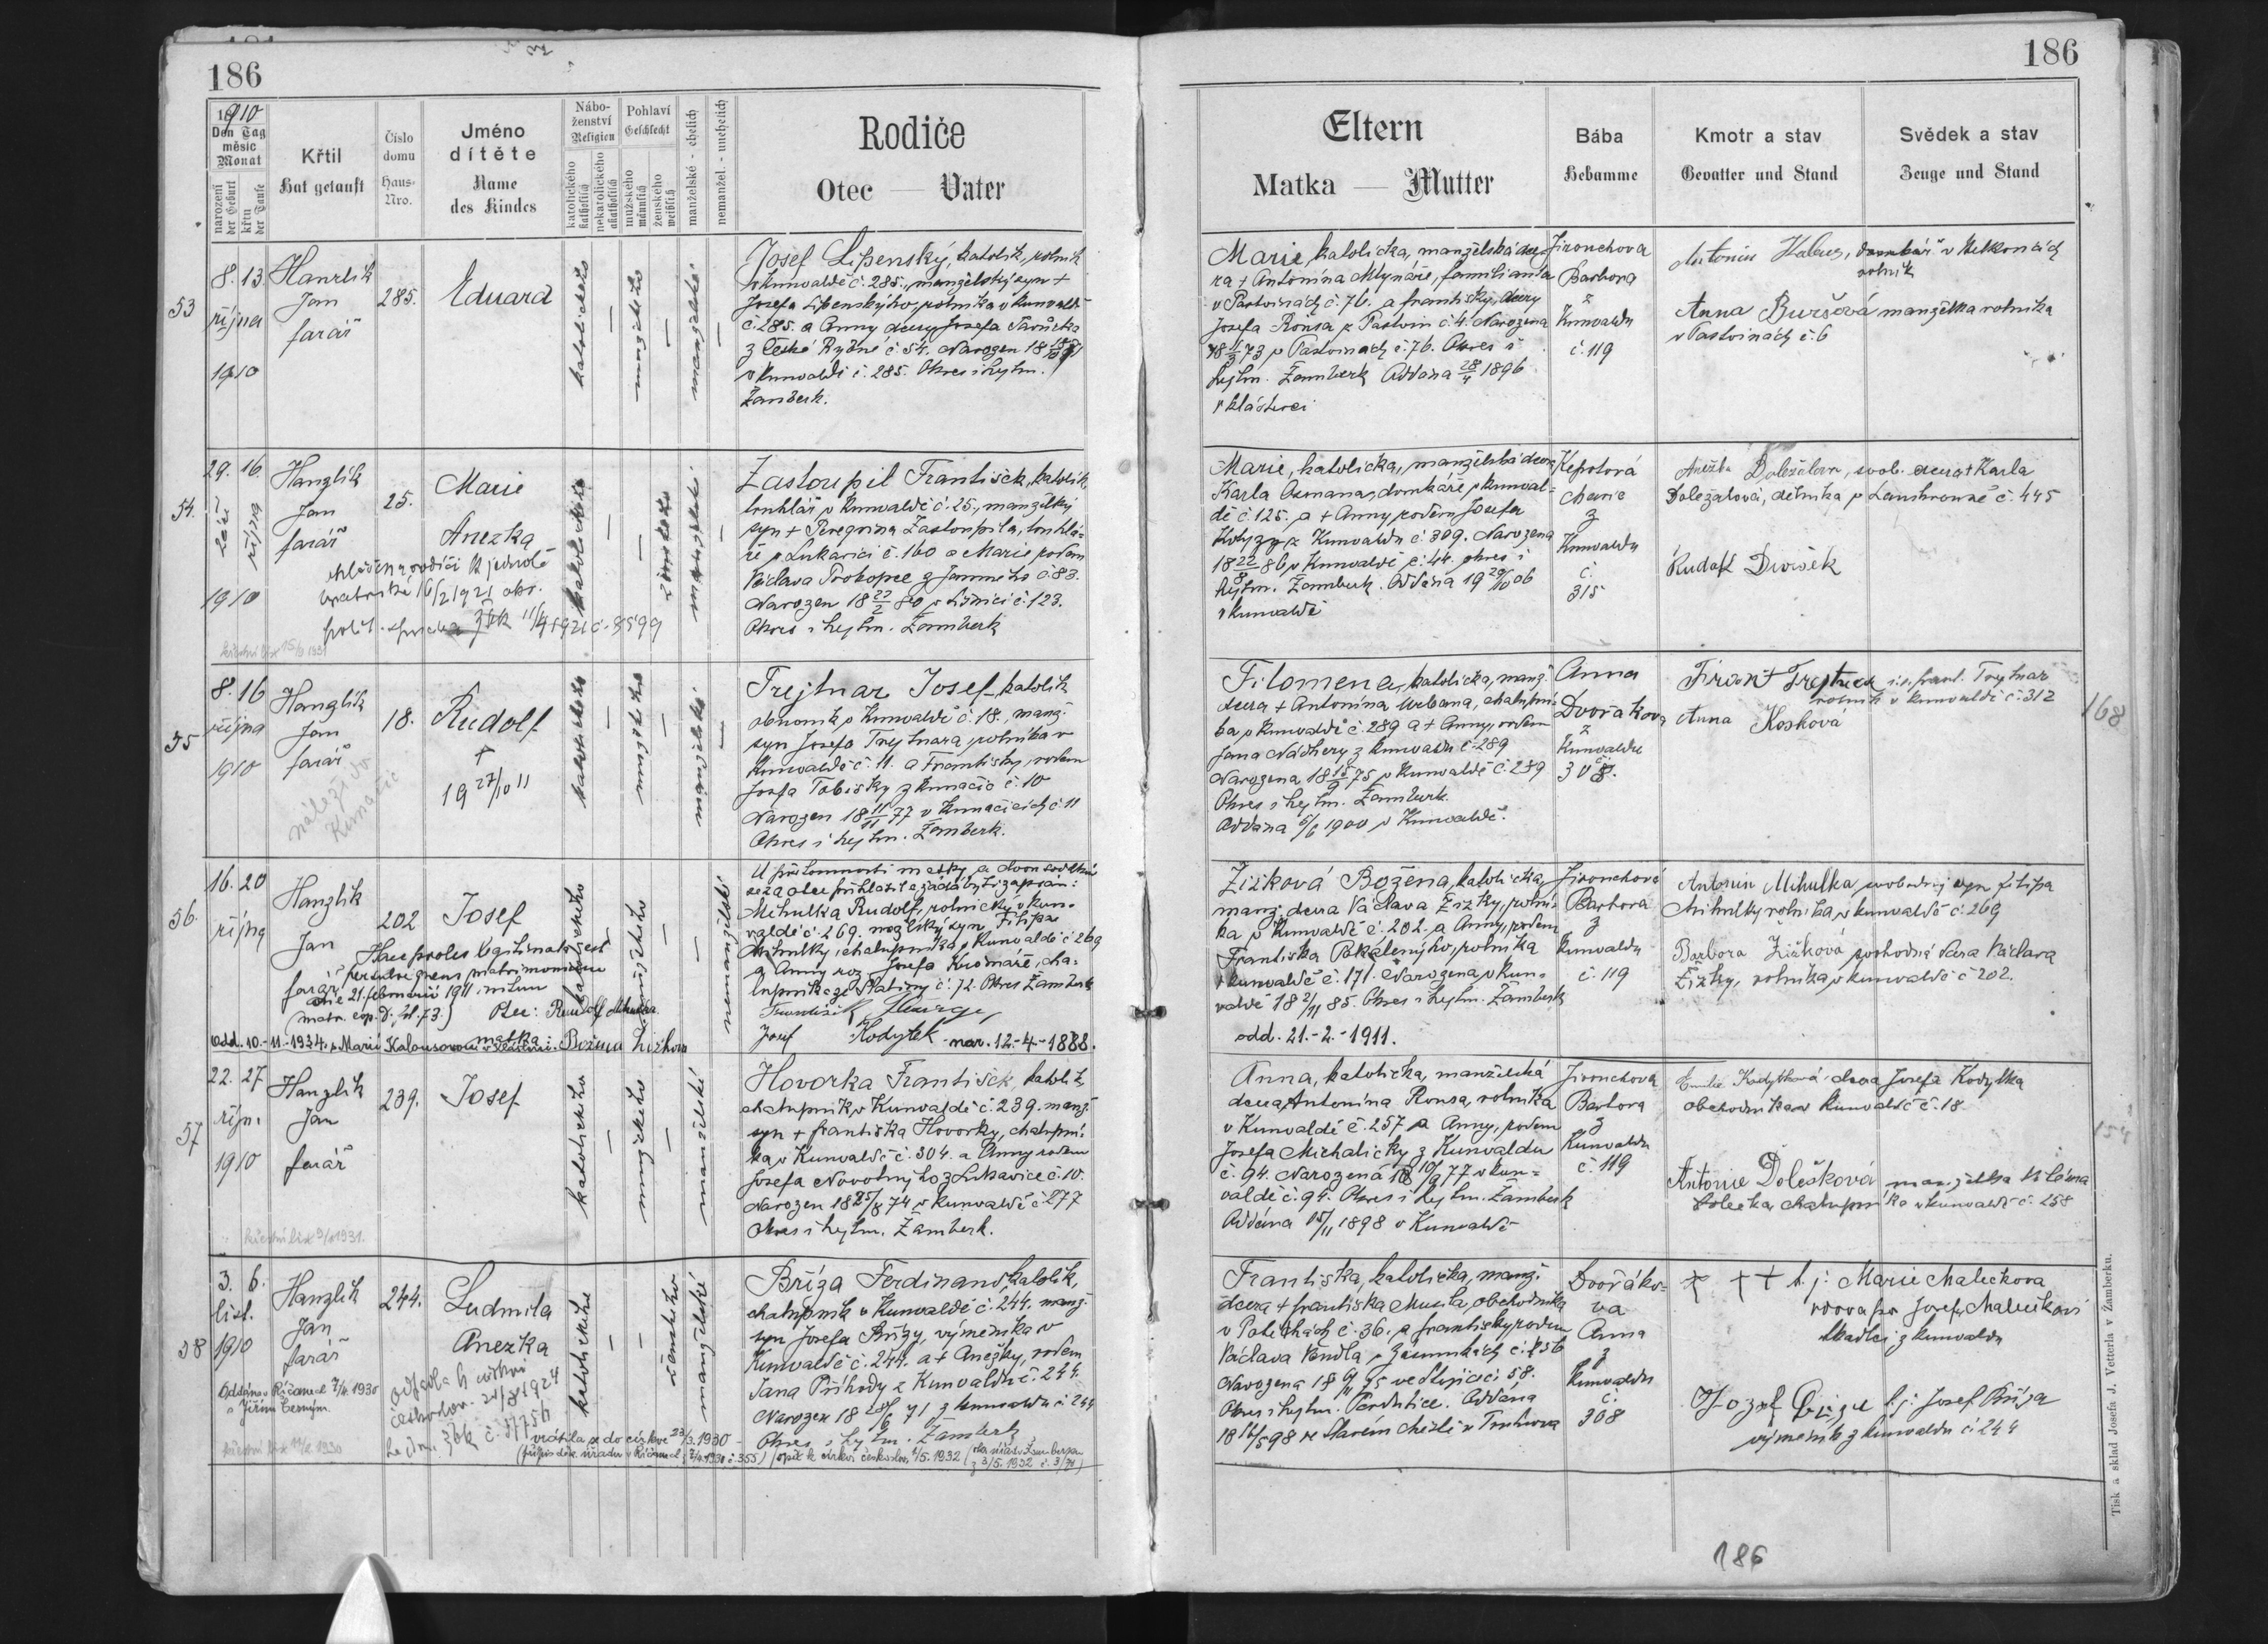 186
186
1910
Den Tag
měsíc
Monat
narození
der Geburt
křtu
der Taufe
Křtil
Hat getauft
Číslo
domu
Haus-
Nro.
Jméno
dítěte
Name
des Kindes
Nábo-
ženství
Religion
katolického
katholisch
nekatolického
akatholisch
Pohlaví
Geschlecht
mužského
männlich
ženského
weiblich
manželské - ehelich
nemanžel. - unehelich
Rodiče
Otec — Vater
Eltern
Matka — Mutter
Bába
Hebamme
Kmotr a stav
Gevatter und Stand
Svědek a stav
Zeuge und Stand
53
8. 13.
října
1910
Hanzlík
Jan
farář
285.
Eduard
katolického
mužského
manželské
Josef Lipenský, katolík, rolník
v Kunvaldě č. 285., manželský syn +
Josefa Lipenského, rolníka v Kunvaldě
č. 285. a Anny dcery Josefa
z České Rybné č. 54. Narozen
v Kunvaldě č. 285. Okres i hejtm.
Žamberk.
Marie, katolička, manželská dce-
ra + Antonína Mlynáře, familianta
v Pastvinách č. 76. a Františky, dcery
Josefa Rousa z Pastvin č. 4. Narozena
18 11/3 73 v Pastvinách č. 76. Okres i
hejtm. Žamberk Oddána 28/4 1896
v Klášterci
Jirouchova
Barbora
z
Kunvaldu
č. 119
Antonín domkář v
rolník
Anna Buršová manželka rolníka
v Pastvinách č. 6
54.
29. 16.
září října
1910
Hanzlík
Jan
farář
25.
Marie
Anežka
bratrské 16/2 1921
11/4 1921 č. 8599
křestní list 1931
katolického
ženského
manželské
Zastoupil František, katolík,
truhlář v Kunvaldě č. 25., manželský
syn + Peregrina Zastoupila, truhlá-
ře v Lukavici č. 160 a Marie rodem
Václava Prokopce z Jamného č. 83.
Narozen 18 22/2 80 v Líšnici č. 123.
Okres i hejtm. Žamberk
Marie, katolička, manželská dcera
Karla domkáře v Kunval-
dě č. 125. a + Anny rodem Josefa
z Kunvaldu č. 309. Narozena
18 22/8 86 v Kunvaldě č. 44. okres i
hejtm. Žamberk. Oddána 19 29/10 06
v Kunvaldě
Kepotová
Marie
z
Kunvaldu
č.
315
Anežka Doležalova, svob. dcera + Karla
Doležalova, dělníka v Lanškrouně č. 445
Rudolf Dvořák
55
8. 16
října
1910
Hanzlík
Jan
farář
náleží do
Kunačic
18.
Rudolf
+
19 27/10 11
katolického
mužského
manželské
Trejtnar Josef, katolík
obuvník v Kunvaldě č. 18., manž.
syn Josefa Trejtnara, rolníka v
Kunvaldě č. 11. a Františky, rodem
Josefa Tobišky z Kunačic č. 10
Narozen 18 11/11 77 v Kunačicích č. 11
Okres i hejtm. Žamberk.
Filomena, katolička, manž.
dcera + Antonína Urbana, chalupní-
ka v Kunvaldě č. 289 a + Anny, rodem
Jana Náchery z Kunvaldu č. 289
Narozena 18 15/9 75 v Kunvaldě č. 289
Okres i hejtm. Žamberk.
Oddána 5/6 1900 v Kunvaldě.
Anna
Dvořáková
z
Kunvaldu
308.
Trejtnar Trejtnar
rolník v Kunvaldě č. 312
Anna Kosková
168
56.
16. 20
října
Hanzlík
Jan
farář
202
Josef
Haec proles legitimata est
per subsequens matrimonium
die 21. februarii 1911. initum
(matr. cop. D. fol. 73.)
Otec: Rudolf Mihulka
matka: Božena Žižková
odd. 10.-11.-1934. s Marií Kalousovou v Klášterci.
katolického
mužského
nemanželské
U přítomnosti matky a dvou svědků
se za otce přihlásil a žádá býti zapsán:
Mihulka Rudolf, rolnický v Kun-
valdě č. 269. manželský syn Filipa
Mihulky, chalupníka v Kunvaldě č. 269
a Anny roz. Josefa Kromáře, cha-
lupníka ze Slatiny č. 72. Okres Žamberk
František
Josef Kodytek nar. 12.-4.-1888.
Žižková Božena, katolička,
manž. dcera Václava Žižky, rolní-
ka v Kunvaldě č. 202. a Anny, rodem
Františka Pokáleného, rolníka
v Kunvaldě č. 171. Narozena v Kun-
valdě 18 2/11 85. Okres i hejtm. Žamberk
odd. 21.-2.-1911.
Jirouchová
Barbora
z
Kunvaldu
č. 119
Antonín Mihulka, svobodný syn Filipa
Mihulky rolníka v Kunvaldě č. 269
Barbora Žižková svobodná dcera Václava
Žižky, rolníka v Kunvaldě č. 202.
57
22. 27
říjn.
1910
Hanzlík
Jan
farář
239.
Josef
křestní list 1931.
katolického
mužského
manželské
Hovorka František, katolík,
chalupník v Kunvaldě č. 239. manž.
syn + Františka Hovorky, chalupní-
ka v Kunvaldě č. 304. a Anny rodem
Josefa Novotného z Lukavice č. 10.
Narozen 18 25/8 74 v Kunvaldě č. 277
okres i hejtm. Žamberk.
Anna, katolička, manželská
dcera Antonína Rousa, rolníka
v Kunvaldě č. 257 a Anny, rodem
Josefa Michaličky z Kunvaldu
č. 94. Narozená 18 10/9 77 v Kun-
valdě č. 94. Okres i hejtm. Žamberk
Oddána 15/11 1898 v Kunvaldě
Jirouchova
Barbora
z
Kunvaldu
č. 119
Emilie Kodytková dcera Josefa Kodytka
obchodníka v Kunvaldě č. 18.
Antonie Dolešková manželka
Doleška chalupníka v Kunvaldě č. 258
154
58
3. 6.
list.
1910
Hanzlík
Jan
farář
244.
Ludmila
Anežka
Oddána v Říčanech 1930
s Jiřím Černým.
křestní list 1930
odpadla k církvi
českoslov. 1924
vrátila se do církve 23/3. 1930 -
(přípis děk. úřadu v Říčanech č. 355) opět k církvi českoslov. 1/5. 1932
katolického
ženského
manželské
Bříza Ferdinand, katolík,
chalupník v Kunvaldě č. 244. manž.
syn Josefa Břízy, výměníka v
Kunvaldě č. 244. a + Anežky, rodem
Jana Příhody z Kunvaldu č. 244.
Narozen 18 28/6 71 z Kunvaldu č. 244
Okres i hejtm. Žamberk
Františka, katolička, manž.
dcera + Františka Musila, obchodníka
v č. 36. a Františky rodem
Václava
Okres i hejtm. Pardubice. Oddána
Dvořáko-
va
Anna
z
Kunvaldu
č.
308
+ + + t. j. Marie Malečkova
vdova po Josefu Malečkovi
z Kunvaldu
Jozef Bříza t. j. Josef Bříza
výměník z Kunvaldu č. 244
186
Tisk a sklad Josefa J. Vetterla v Žamberku.